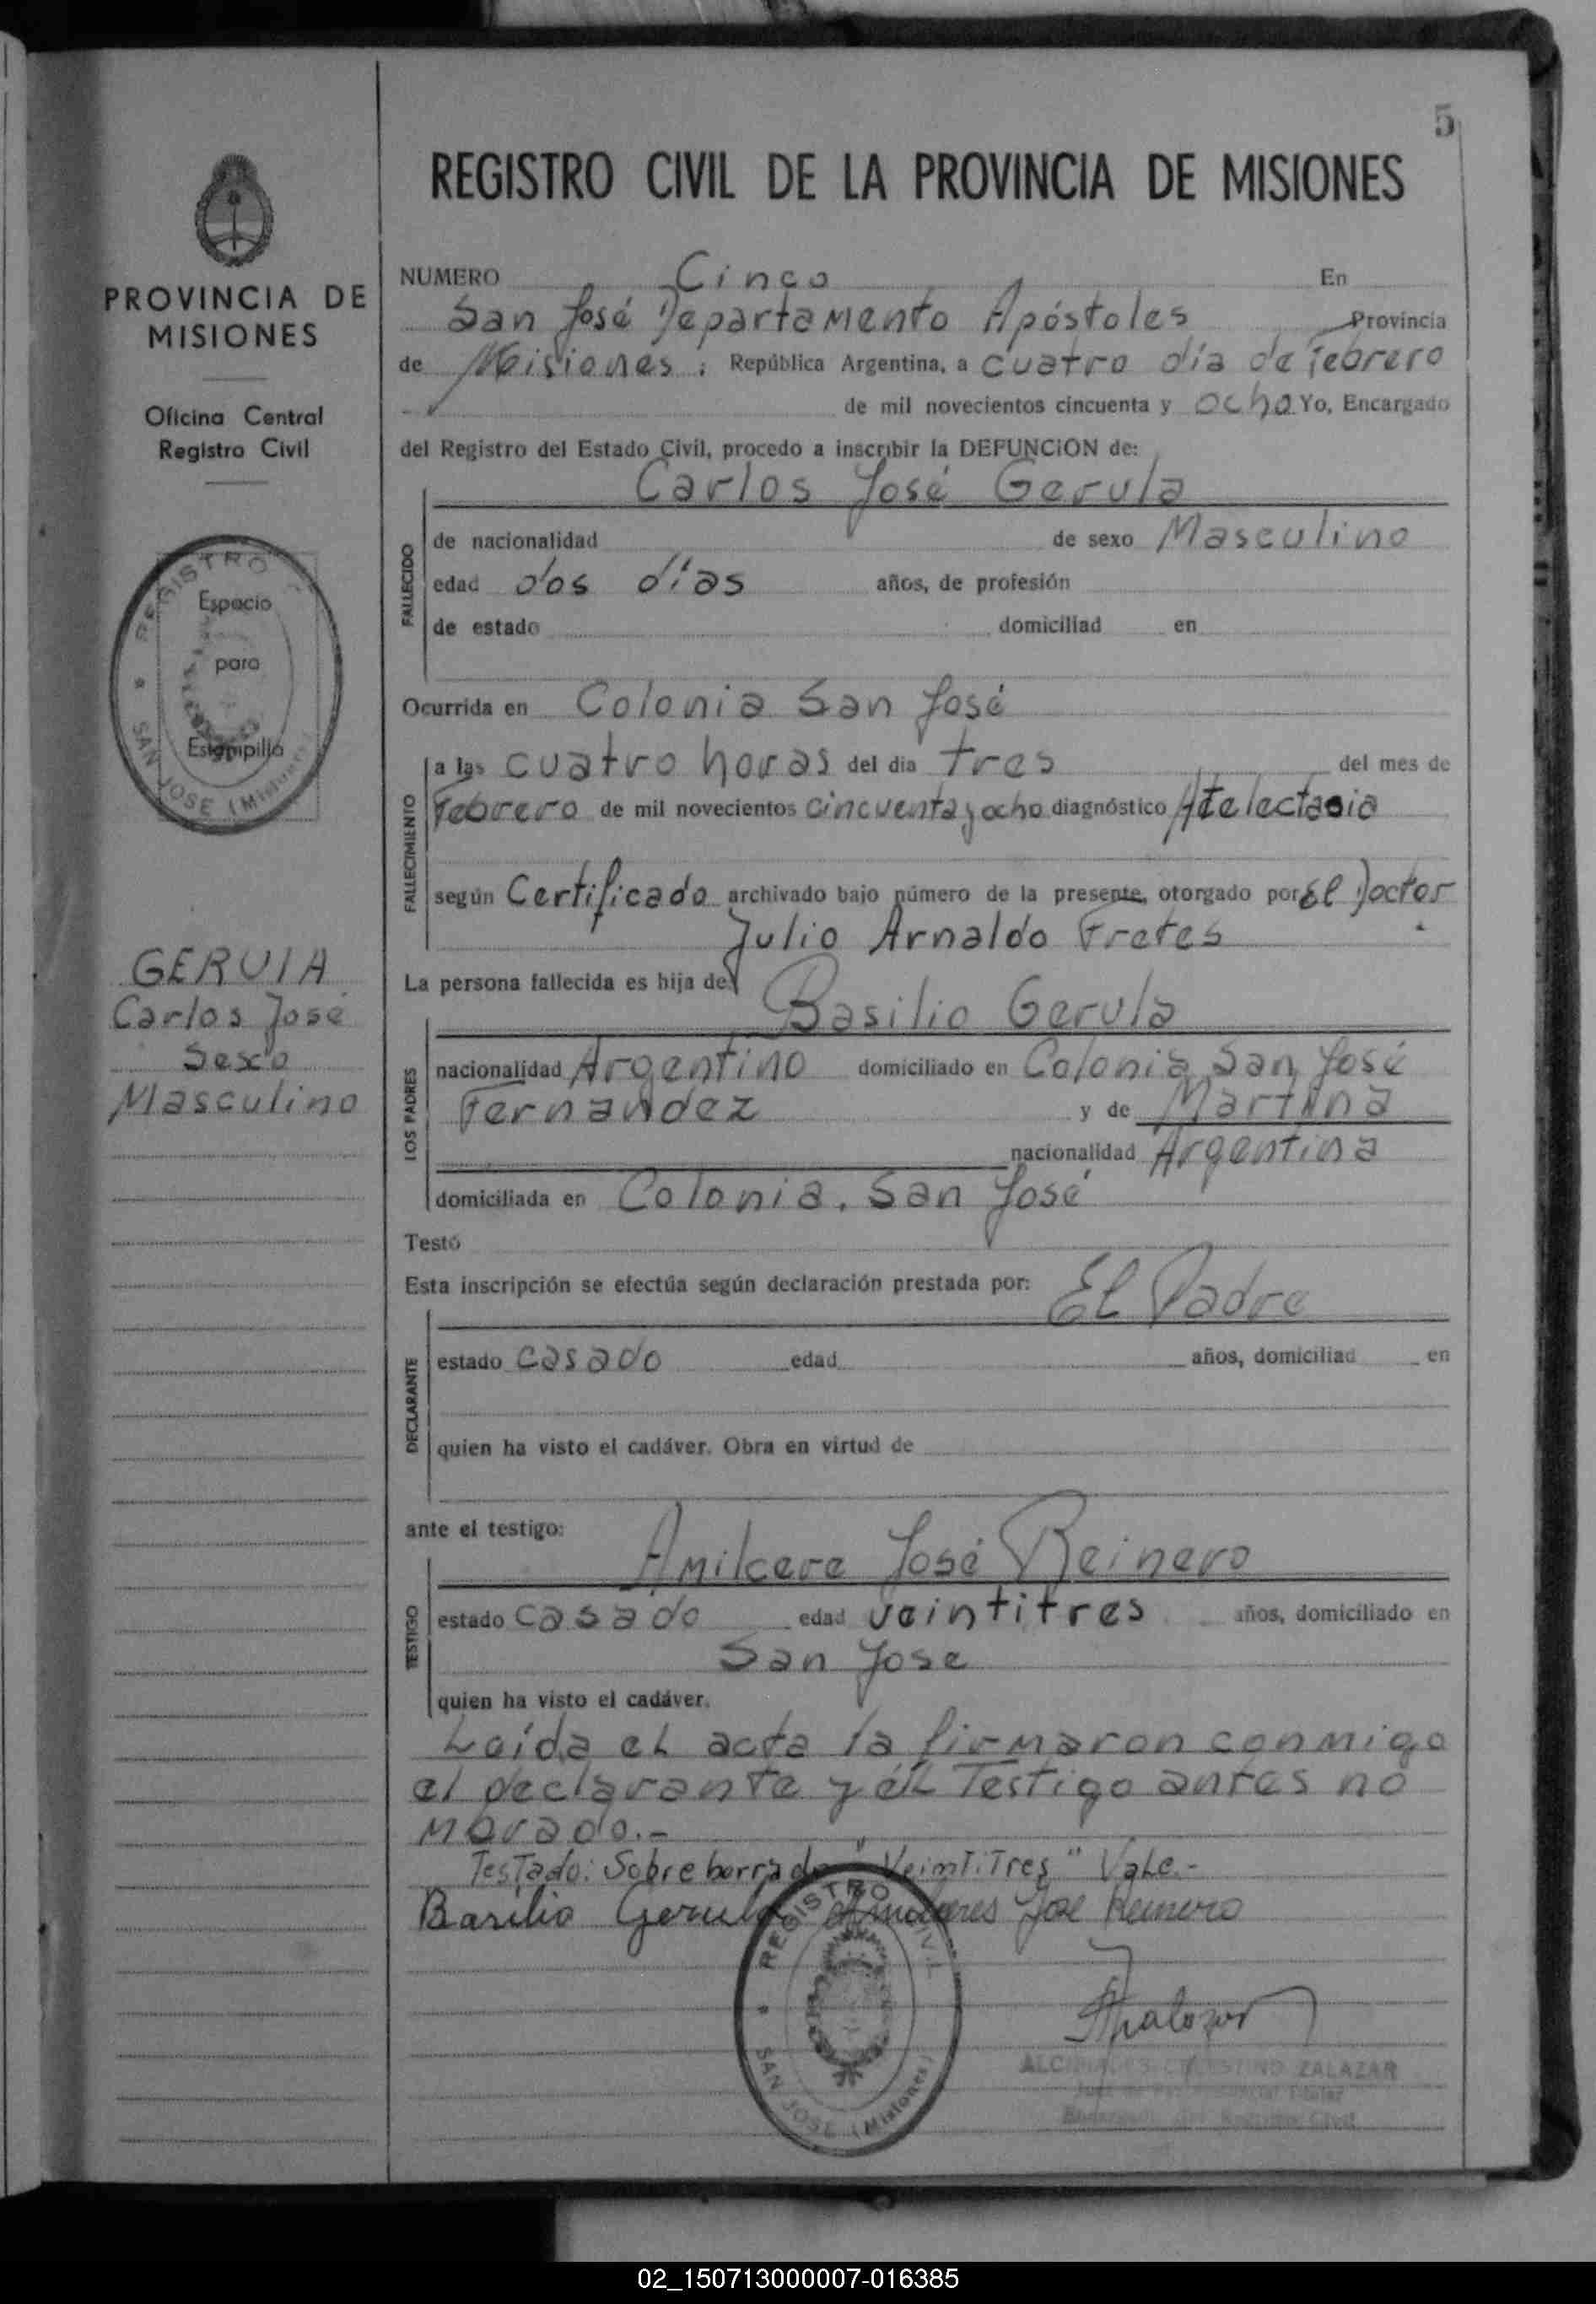 5
REGISTRO CIVIL DE LA PROVINCIA DE MISIONES
PROVINCIA DE
MISIONES
Oficina Central
Registro Civil
REGISTRO C
Espacio
para
Estampilla
SAN JOSE (Misiones)
GERULA
Carlos José
Sexo
Masculino
NUMERO Cinco En
San José Departamento Apóstoles Provincia
de Misiones; República Argentina, a cuatro día de Febrero
de mil novecientos cincuenta y ocho Yo, Encargado
del Registro del Estado Civil, procedo a inscribir la DEFUNCION de:
Carlos José Gerula
FALLECIDO
de nacionalidad de sexo Masculino
edad dos días años, de profesión
de estado domiciliad en
Ocurrida en Colonia San José
FALLECIMIENTO
a las cuatro horas del dia tres del mes de
Febrero de mil novecientos cincuenta y ocho diagnóstico Atelectasia
según Certificado archivado bajo número de la presente, otorgado por El Doctor
Julio Arnaldo Fretes
La persona fallecida es hija de:
Basilio Gerula
LOS PADRES
nacionalidad Argentino domiciliado en Colonia San José
Fernandez y de Martina
nacionalidad Argentina
domiciliada en Colonia. San José
Testó
Esta inscripción se efectúa según declaración prestada por: El Padre
DECLARANTE
estado casado edad años, domiciliad en
quien ha visto el cadáver. Obra en virtud de
ante el testigo: Amilcere José Reinero
TESTIGO
estado casado edad veintitres años, domiciliado en
San Jose
quien ha visto el cadáver.
Leída el acta la firmaron conmigo
el declarante y el Testigo antes no
morado.-
Testado: Sobreborrado "Veintitres" Vale.-
Basilio Gerula José Reinero
REGISTRO CIVIL
SAN JOSE (Misiones)
ZALAZAR
02_150713000007-016385